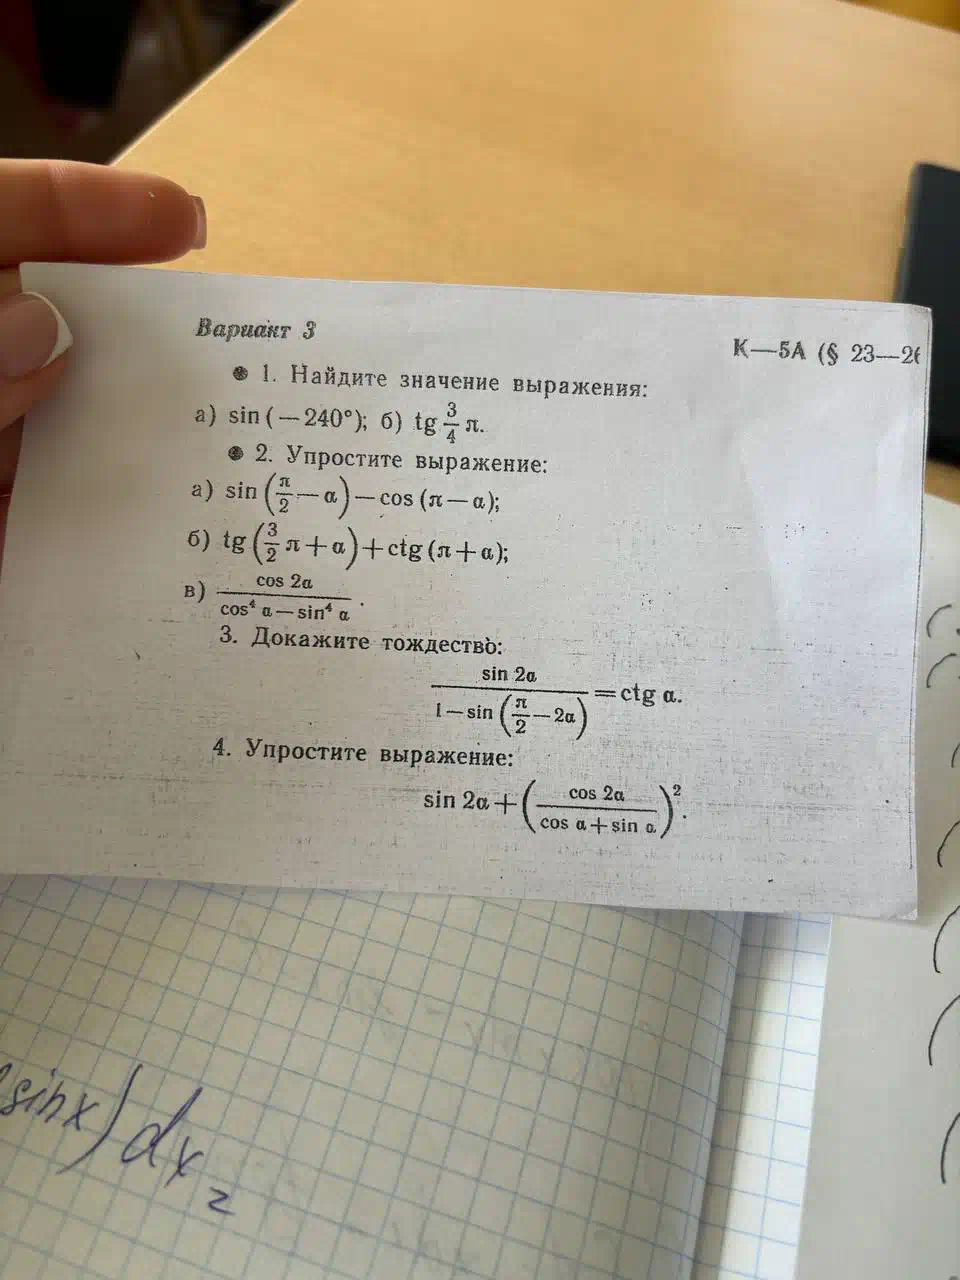 Вариант 3
К—5А (§ 23—26
1. Найдите значение выражения:
а) sin (—240°); б) tg 3/4 π.
2. Упростите выражение:
а) sin (π/2 — α) — cos (π — α);
б) tg (3/2 π + α) + ctg (π + α);
в) cos 2α / (cos⁴ α — sin⁴ α).
3. Докажите тождество:
sin 2α / (1 — sin (π/2 — 2α)) = ctg α.
4. Упростите выражение:
sin 2α + (cos 2α / (cos α + sin α))².
sinx) dx =